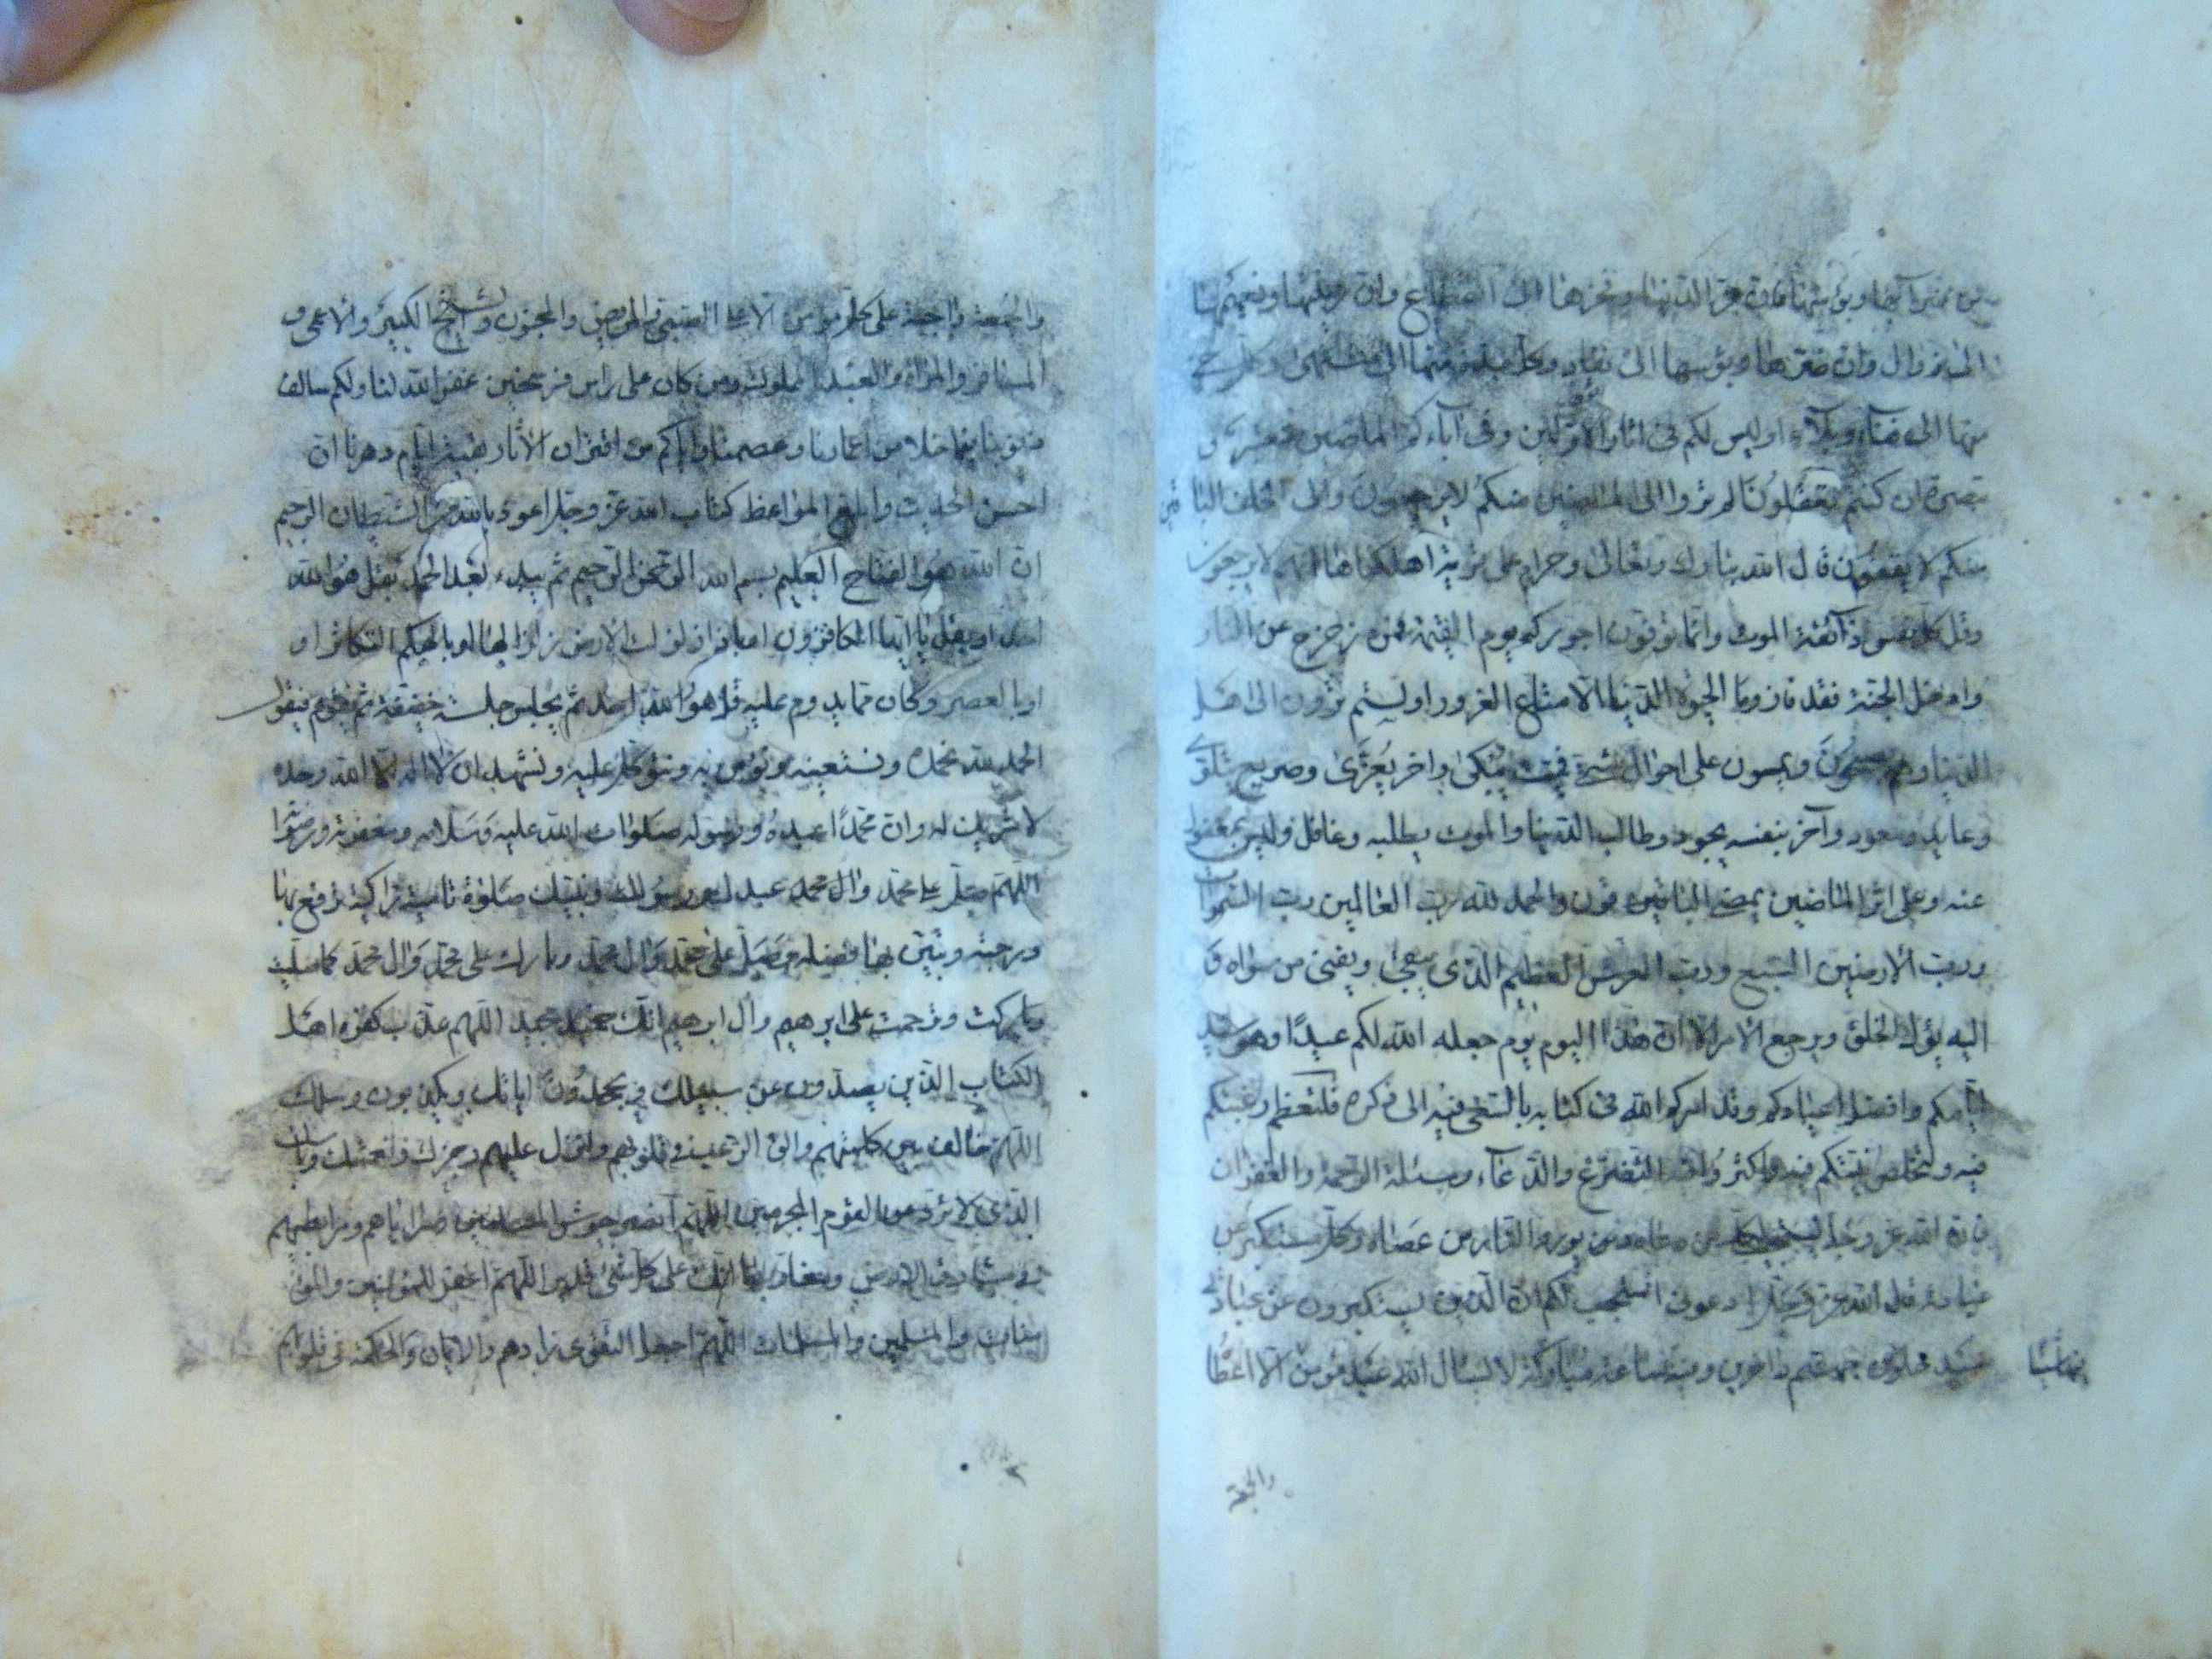 من ضرائها وبؤسها فان عز الدنيا وفخرها الى انقطاع وان زينتها ونعيمها
الى زوال وان ضرها وبؤسها الى نفاد وكل مدة منها الى منتهى وكل حي
منها الى فناء وبلاء اوليس لكم في اثار الاولين وفي آباءكم الماضين معتبر و
تبصرة ان كنتم تعقلون الم تروا الى الماضين منكم لا يرجعون والى الخلف الباقين
منكم لا يقفون قال الله تبارك وتعالى وحرام على قرية اهلكناها انهم لا يرجعون
وقال كل نفس ذآئقة الموت وانما توفون اجوركم يوم القيمة فمن زحزح عن النار
وادخل الجنة فقد فاز وما الحيوة الدنيا الا متاع الغرور اولستم ترون الى اهل
الدنيا وهم يصبحون ويمسون على احوال شتى فميت يبكى واخر يعزى وصريع يتلوى
وعايد ومعود وآخر بنفسه يجود وطالب الدنيا والموت يطلبه وغافل وليس بمغفول
عنه وعلى اثر الماضين يمضي الباقون والحمد لله رب العالمين رب السموات
ورب الارضين السبع ورب العرش العظيم الذي يبقى ويفنى من سواه و
اليه يؤل الخلق ويرجع الامر الا ان هذا اليوم يوم جعله الله لكم عيدًا وهو سيد
ايامكم وافضل اعيادكم وقد امركم الله في كتابه بالسعي فيه الى ذكره فلتعظم رغبتكم
فيه ولتخلص نيتكم فيه واكثروا فيه التضرع والدعآء ومسئلة الرحمة والغفران
فان الله عز وجل يستجيب لكل من دعاه ويورد النار من عصاه وكل مستكبر عن
عبادته قال الله عز وجل ادعوني استجب لكم ان الذين يستكبرون عن عبادتي
سيدخلون جهنم داخرين وفيه ساعة مباركة لا يسال الله عبد مؤمن الا اعطاه
فيها شيئا
والجمعة
والجمعة واجبة على كل مؤمن الا على الصبي والمريض والمجنون والشيخ الكبير والاعمى و
المسافر والمرأة والعبد المملوك ومن كان على راس فرسخين غفر الله لنا ولكم سالف
ذنوبنا فيما خلا من اعمارنا وعصمنا واياكم من اقتراف الآثام بقية ايام دهرنا ان
احسن الحديث وابلغ المواعظ كتاب الله عز وجل اعوذ بالله من الشيطان الرجيم
ان الله هو الفتاح العليم بسم الله الرحمن الرحيم ثم يبدء بعد الحمد بقل هو الله
احد او بقل يا ايها الكافرون او باذا زلزلت الارض زلزالها او بالهيكم التكاثر او
او بالعصر وكان مما يدوم عليه قل هو الله احد ثم يجلس جلسة خفيفة ثم يقوم فيقول
الحمد لله نحمده ونستعينه ونؤمن به ونتوكل عليه ونشهد ان لا اله الا الله وحده
لا شريك له وان محمدًا عبده ورسوله صلوات الله عليه وسلامه ومغفرته ورضوانه
اللهم صل على محمد وال محمد عبدك ورسولك ونبيك صلوة نامية زاكية ترفع بها
درجته وتبين بها فضله وصل على محمد وال محمد وبارك على محمد وال محمد كما صليت
وباركت وترحمت على ابرهيم وال ابرهيم انك حميد مجيد اللهم عذب كفرة اهل
الكتاب الذين يصدون عن سبيلك ويجحدون اياتك ويكذبون رسلك
اللهم خالف بين كلمتهم والق الرعب في قلوبهم وانزل عليهم رجزك ونقمتك وباسك
الذي لا ترده عن القوم المجرمين اللهم انصر جيوش المسلمين وسراياهم ومرابطيهم
في مشارق الارض ومغاربها انك على كل شئ قدير اللهم اغفر للمؤمنين والمؤ
منات والمسلمين والمسلمات اللهم اجعل التقوى زادهم والايمان والحكمة في قلوبهم